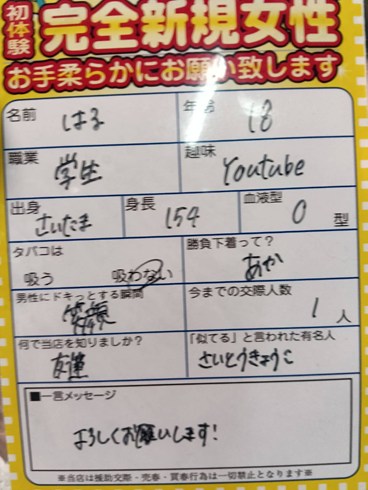 初体験
完全新規女性
お手柔らかにお願い致します
名前 はる
年齢 18
職業 学生
趣味 Youtube
出身 さいたま
身長 154
血液型 O 型
タバコは
吸う 吸わない
勝負下着って?
あか
男性にドキっとする瞬間
笑顔
今までの交際人数
1人
何で当店を知りましたか?
友達
「似てる」と言われた有名人
さいとうきょうこ
■一言メッセージ
よろしくお願いします!
※当店は援助交際・売春・買春行為は一切禁止となります※